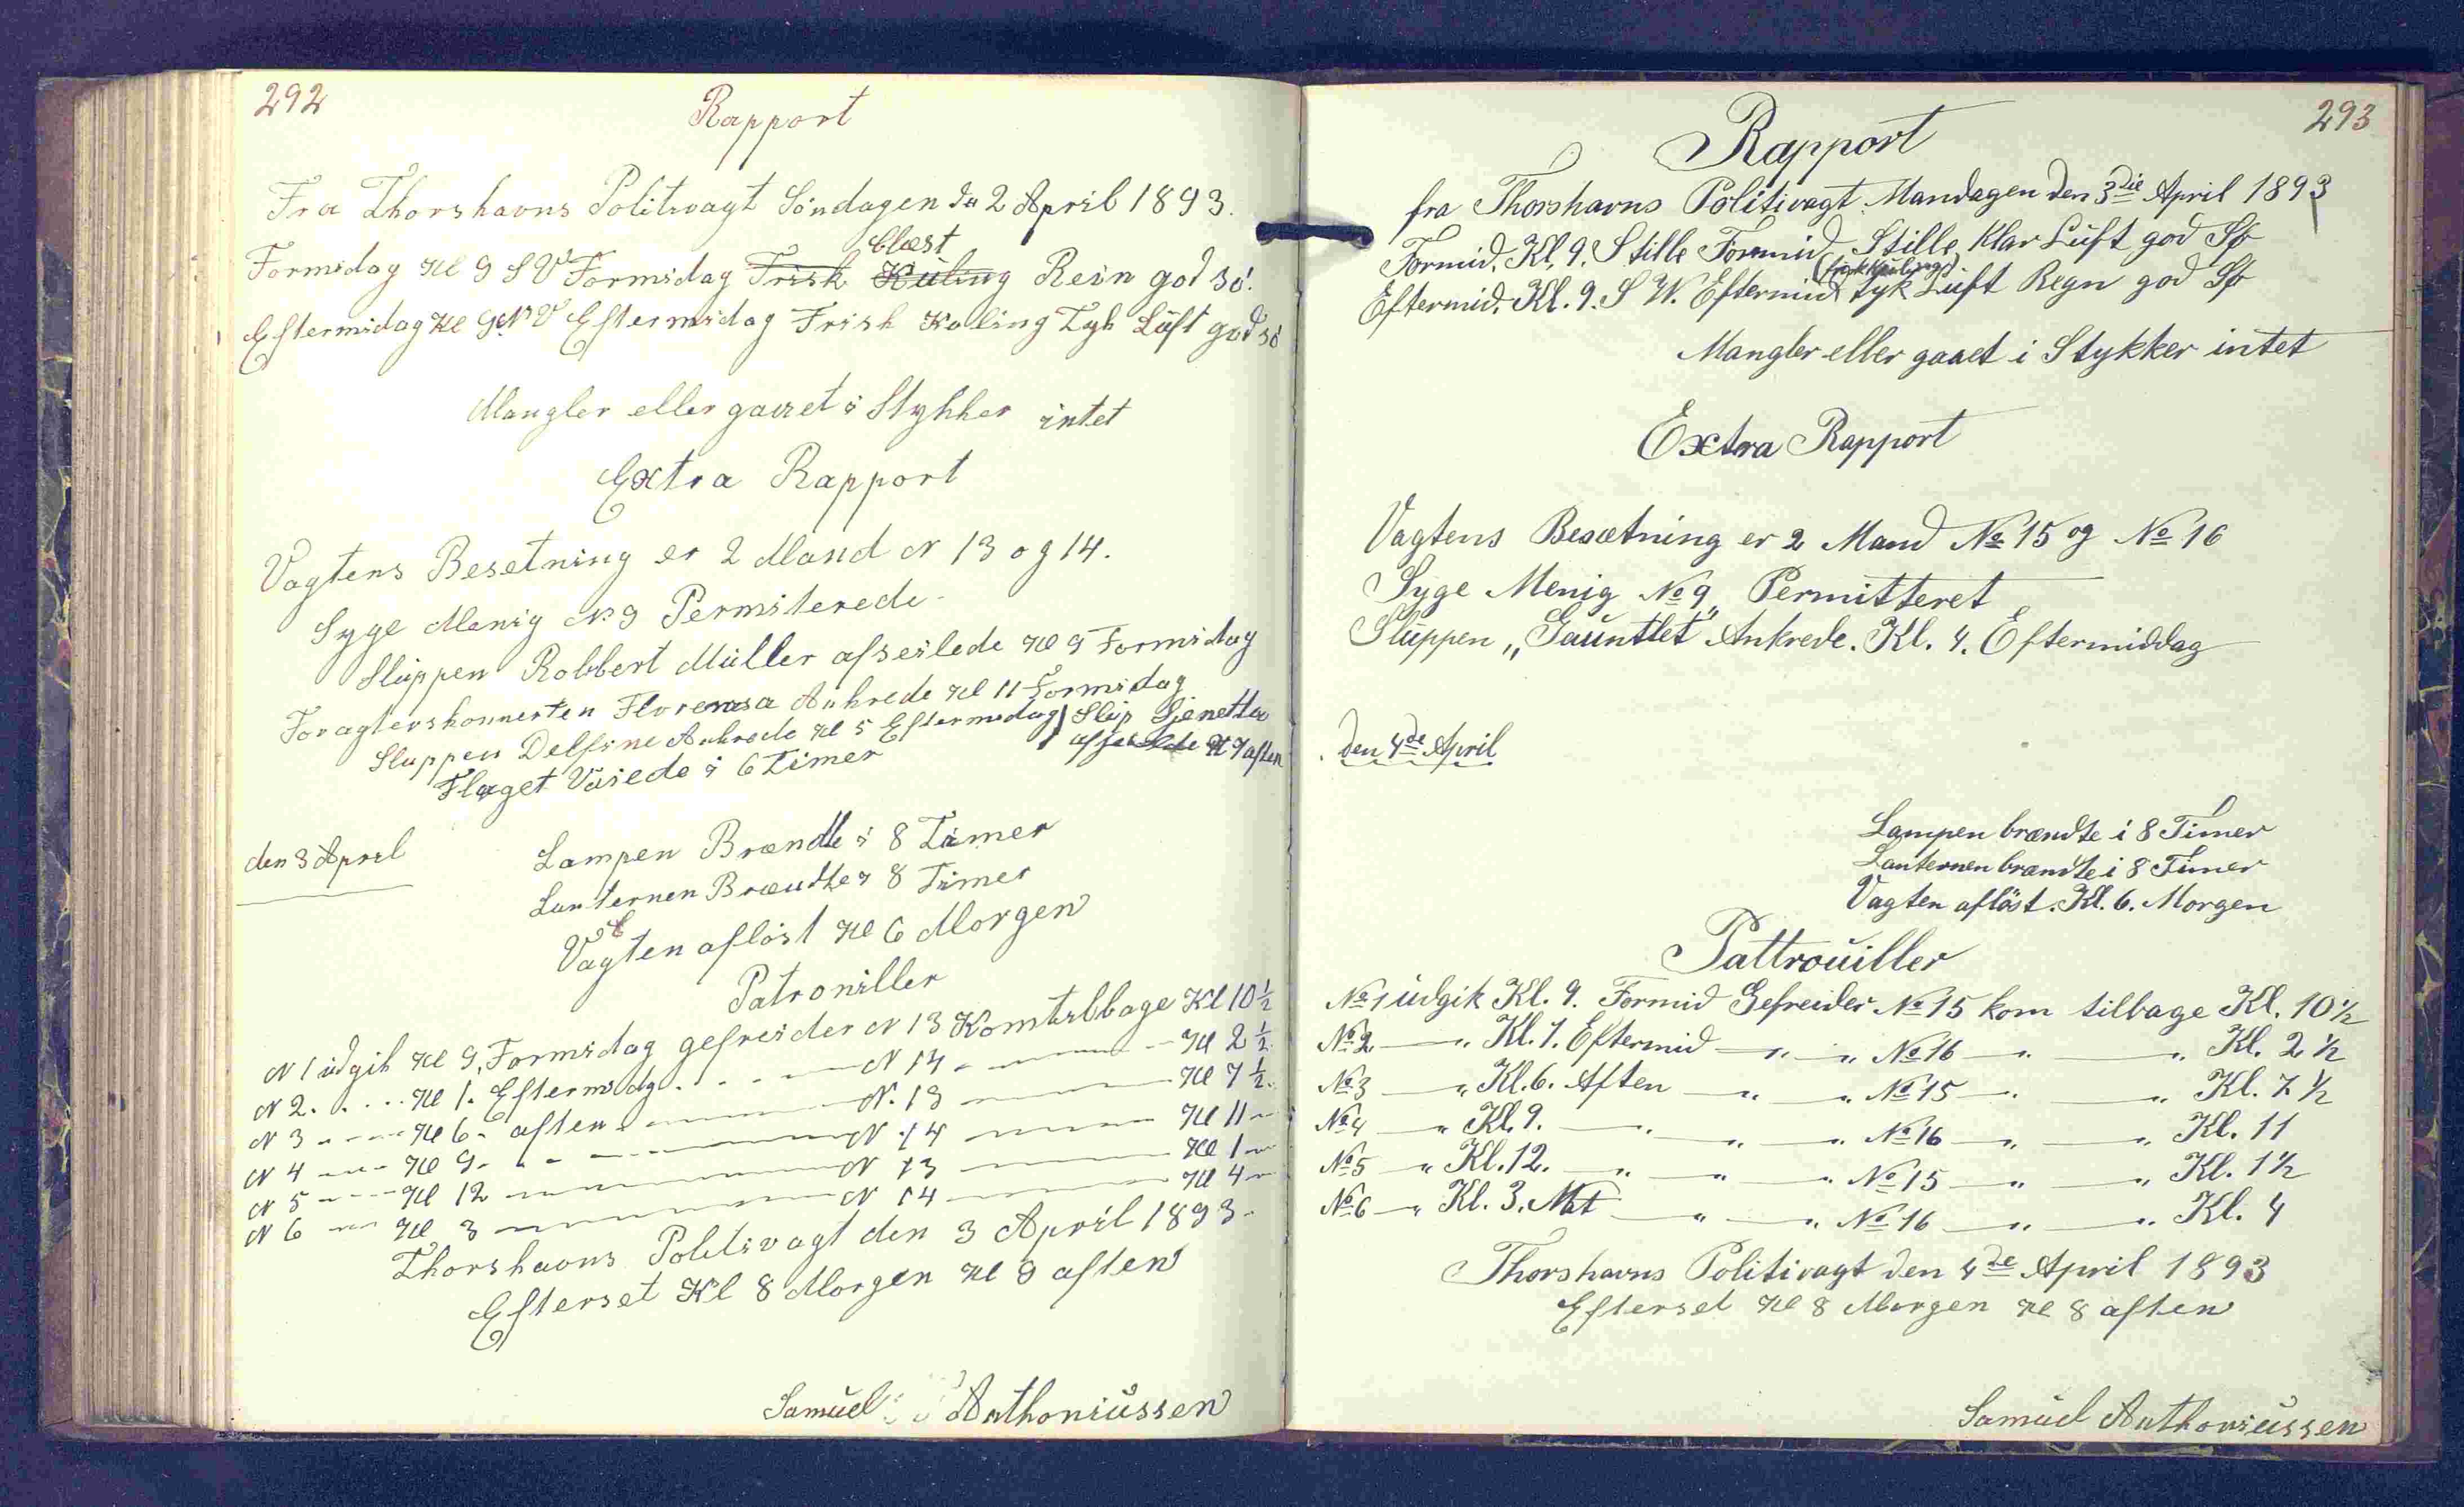 292
Rapport
Fra Thorshavns Politivagt Søndagen dn 2 April 1893.
blæst
Formidag Kl 9 S V Formidag Frisk Kuling Rein god sø.
Eftermidag Kl 9 N V Eftermidag Frisk Kuling Tyk Luft god sø
Mangler eller gaaet i Stykker intet
Extra Rapport
Vagtens Besetning er 2 Mand N 13 og 14.
Syge Menig N 9 Permiterede
Sluppen Robbert Müller afseilede Kl 9 Formidag
Foragterskonnerten Ankrede Kl 11 Formidag
Sluppen Delfine Ankrede Kl 5 Eftermidag Slup Sjenetta
afseilede Kl 7 aften
Flaget Vaiede i 6 Timer
den 3 April
Lampen Brændte i 8 Timer
Lanternen Brændte i 8 Timer
Vagten afløst Kl 6 Morgen
Patroniller
N 1 udgik Kl 9, Formidag gefreider N 13 Kom tilbage Kl 10½
N 2 Kl 1. Eftermidg. N 14 Kl 2½
N 3 Kl 6. aften N. 13 Kl 7½
N 4 Kl 9 N 14 Kl 11
N 5 Kl 12 N 13 Kl 1
N 6 Kl 3 N 14 Kl 4
Thorshavns Politivagt den 3 April 1893.
Efterset Kl 8 Morgen Kl 8 aften
Samuel Anthoniussen
293
Rapport
fra Thorshavns Politivagt Mandagen den 3die April 1893
Formid. Kl. 9. Stille Formid Stille, Klar Luft god Sø
(frisk Kuling)
Eftermid. Kl. 9. S W. Eftermid tyk Luft Regn god Sø
Mangler eller gaaet i Stykker intet
Extra Rapport
Vagtens Besætning er 2 Mand No 15 og No 16
Syge Menig No 9, Permitteret
Sluppen „Gauntlet" Ankrede. Kl. 4. Eftermiddag
den 4de April
Lampen brændte i 8 Timer
Lanternen brændte i 8 Timer
Vagten afløst. Kl. 6. Morgen
Pattrouiller
No 1 udgik Kl. 9. Formid Gefreider No 15 kom tilbage Kl. 10½
No 2 — „ Kl. 1. Eftermid — „ — „ No 16 — „ — „ Kl. 2½
No 3 — „ Kl. 6. Aften — „ — „ No 15 — „ — „ Kl. 7½
No 4 — „ Kl. 9. — „ — „ — „ No 16 — „ — „ Kl. 11
No 5 — „ Kl. 12. — „ — „ — „ No 15 — „ — „ Kl. 1½
No 6 — „ Kl. 3. Nat — „ — „ No 16 — „ — „ Kl. 4
Thorshavns Politivagt den 4de April 1893
Efterset Kl 8 Morgen Kl 8 aften
Samuel Anthoniussen